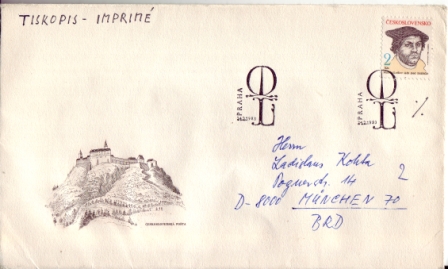 TISKOPIS - IMPRIMÉ
ČESKOSLOVENSKO
2
PRAHA
PRAHA
%
Herrn
Ladislaus Kohha
14
2
D-8000 MÜNCHEN 70
BRD
ČESKOSLOVENSKÁ POŠTA